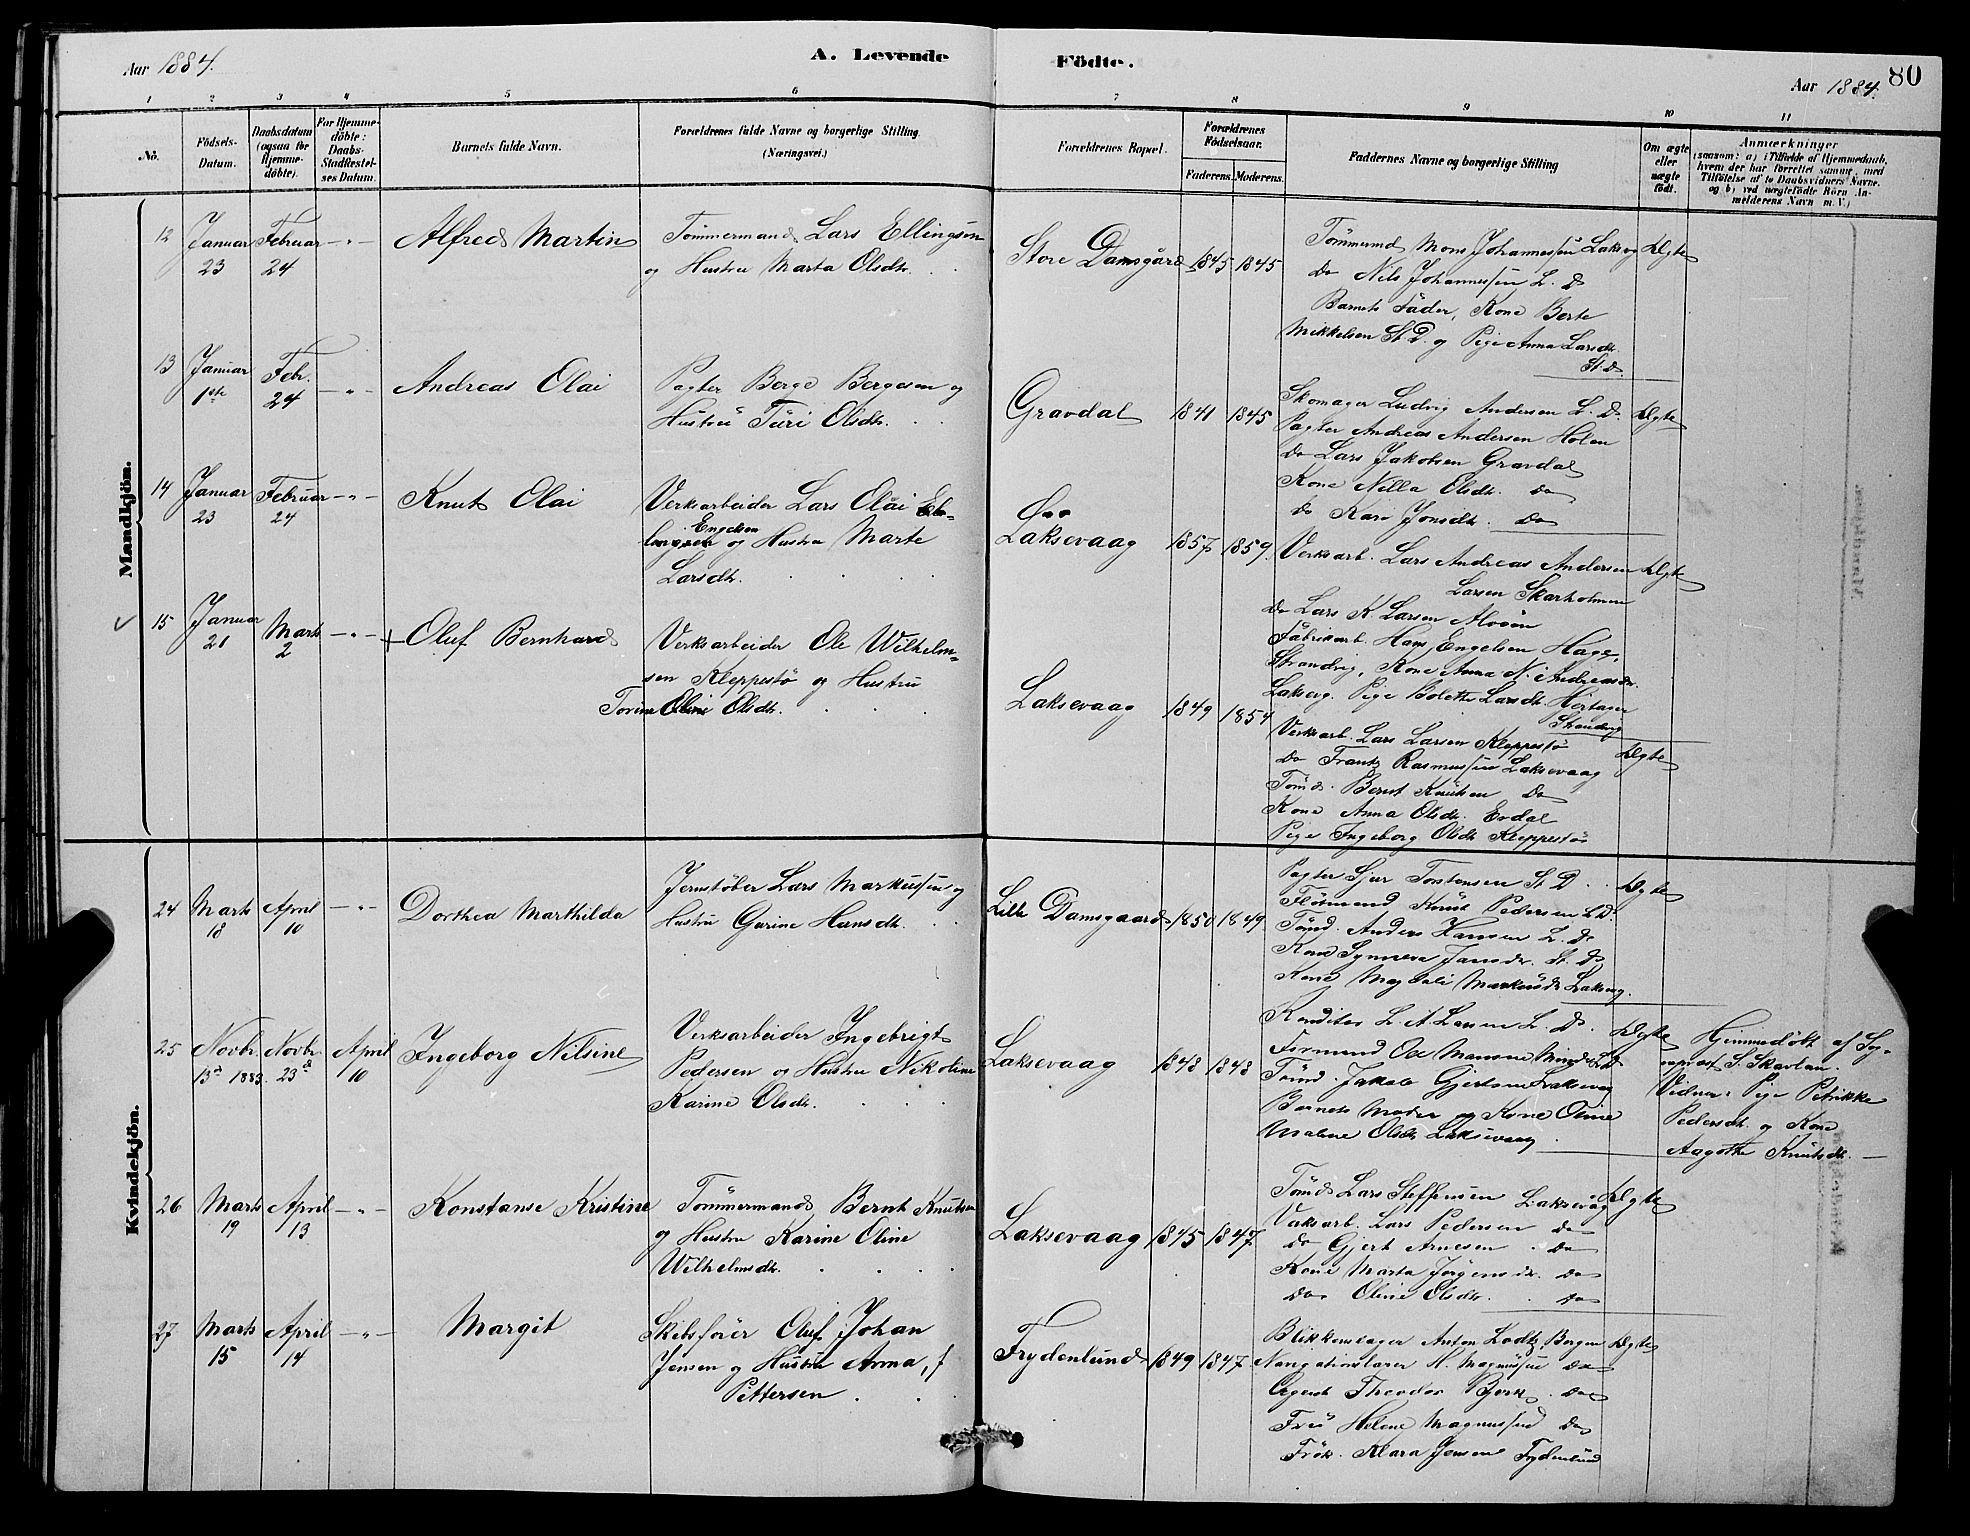 Aar 1884.
A. Levende Födte.
Aar 1884.
80
1 2 3 4 5 6 7 8 9 10 11
No.
Födsels-
Datum.
Daabsdatum
(ogsaa for
Hjemme-
döbte).
For Hjemme-
döbte:
Daabs-
Stadfæstel-
ses Datum.
Barnets fulde Navn.
Forældrenes fulde Navne og borgerlige Stilling.
(Næringsvei.)
Forældrenes Bopæl.
Forældrenes
Födselsaar.
Faderens. Moderens.
Faddernes Navne og borgerlige Stilling
Om ægte
eller
uægte
födt.
Anmærkninger
(saasom: a) i Tilfælde af Hjemmedaab,
hvem der har forrettet samme, med
Tilföielse af to Daabsvidners Navne,
og b) ved uægtefödte Börn An-
melderens Navn m. V.)
Mandkjön.
12 Januar 23 Februar 24 -"- Alfred Martin
Tömmermand Lars Ellingsen
og Hustru Marta Olsdtr.
Store Damsgård 1845 1845
Tömmermd Mons Johannessen Laksvg
Do Nils Johannessen L. D
Barnets Fader, Kone Berte
Mikkelsen St D. og Pige Anna Larsdtr.
St. D.
Ægte
13 Januar 1ste Febr. 24 -"- Andreas Olai
Pagter Berge Bergesen og
Hustru Turi Olsdtr.
Gravdal 1841 1845
Skomager Ludvig Andersen L. D.
Pagter Andreas Andersen Holen
Do Lars Jakobsen Gravdal
Kone Nilla Olsdtr. Do
Do Kari Jonsdtr. Do
Ægte
14 Januar 23 Februar 24 -"- Knut Olai
Verksarbeider Lars Olai
Engelsen
og Hustru Marte
Larsdtr.
Laksevaag 1857 1859.
Verksarb. Lars Andreas Andersen
Larsen Skarholmen
Do Lars K Larsen Alvöen
Fabrikarb. Hans Engelsen Hage,
Strandvig, Kone Anna N. Andreasdr.
Laksvg. Pige Bolette Larsdtr. Hertaner
Strandvig
Ægte
15 Januar 21 Marts 2 -"- Oluf Bernhard
Verksarbeider Ole Wilhelm-
sen Kleppestö og Hustru
Torine Oline Olsdtr.
Laksevaag 1849 1854
Verksarb. Lars Larsen Kleppestö
Do Frantz Rasmussen Laksevaag
Tömd. Bernt Knutsen Do
Kone Anna Olsdtr. Erdal
Pige Ingeborg Olsdtr Kleppestö
Ægte
Kvindekjön.
24 Marts 18 April 10 -"- Dorthea Marthilda
Jernstöber Lars Markussen og
Hustru Gurine Hansdtr.
Lille Damsgaard 1850 1849.
Pagter Sjur Torstensen St D.
Flötmand Knut Pedersen L D.
Tömd. Anders Hansen L. D.
Kone Synneva Jansdr. St. D.
Kone Magdali Markusdr Laksvg.
Ægte
25 Novbr. 13d 1883. Novbr. 23d April 10 Ingeborg Nilsine
Verksarbeider Ingebrigt
Pedersen og Hustru Nikoline
Karine Olsdtr.
Laksevaag 1843 1843
Konditor L. A. Larsen L. D.
Formand Ole Monsen Minde L D
Tömd. Jakob Gjertsen Laksevag
Barnets Moder og Kone Oline
Malene Olsdtr Laksevaag
Ægte
Hjemmedöbt af
S. Skavlan.
Vidner: Pige Petrikke
Pedersdtr. og Kone
Aagothe Knutsdtr.
26 Marts 19 April 13 -"- Konstanse Kristine
Tömmermand Bernt Knutsen
og Hustru Karine Oline
Wilhelmsdtr.
Laksevaag 1845 1847.
Tömd Lars Steffensen Laksevåg
Verksarb. Lars Pedersen Do
Do Gjert Arnesen Do
Kone Marta Jörgensdr. Do
Do Oline Olsdtr. Do
Ægte
27 Marts 15 April 14 -"- Margit
Skibsförer Oluf Johan
Jensen og Hustru Anna, f
Pettersen
Frydenlund 1849 1847.
Blikkenslager Anton Lodtz Bergen
Navigationslærer H. Magnussen Do
Agent Theodor Bjork Do
Fru Helene Magnussen Do
Frök. Klara Jensen Frydenlund
Ægte